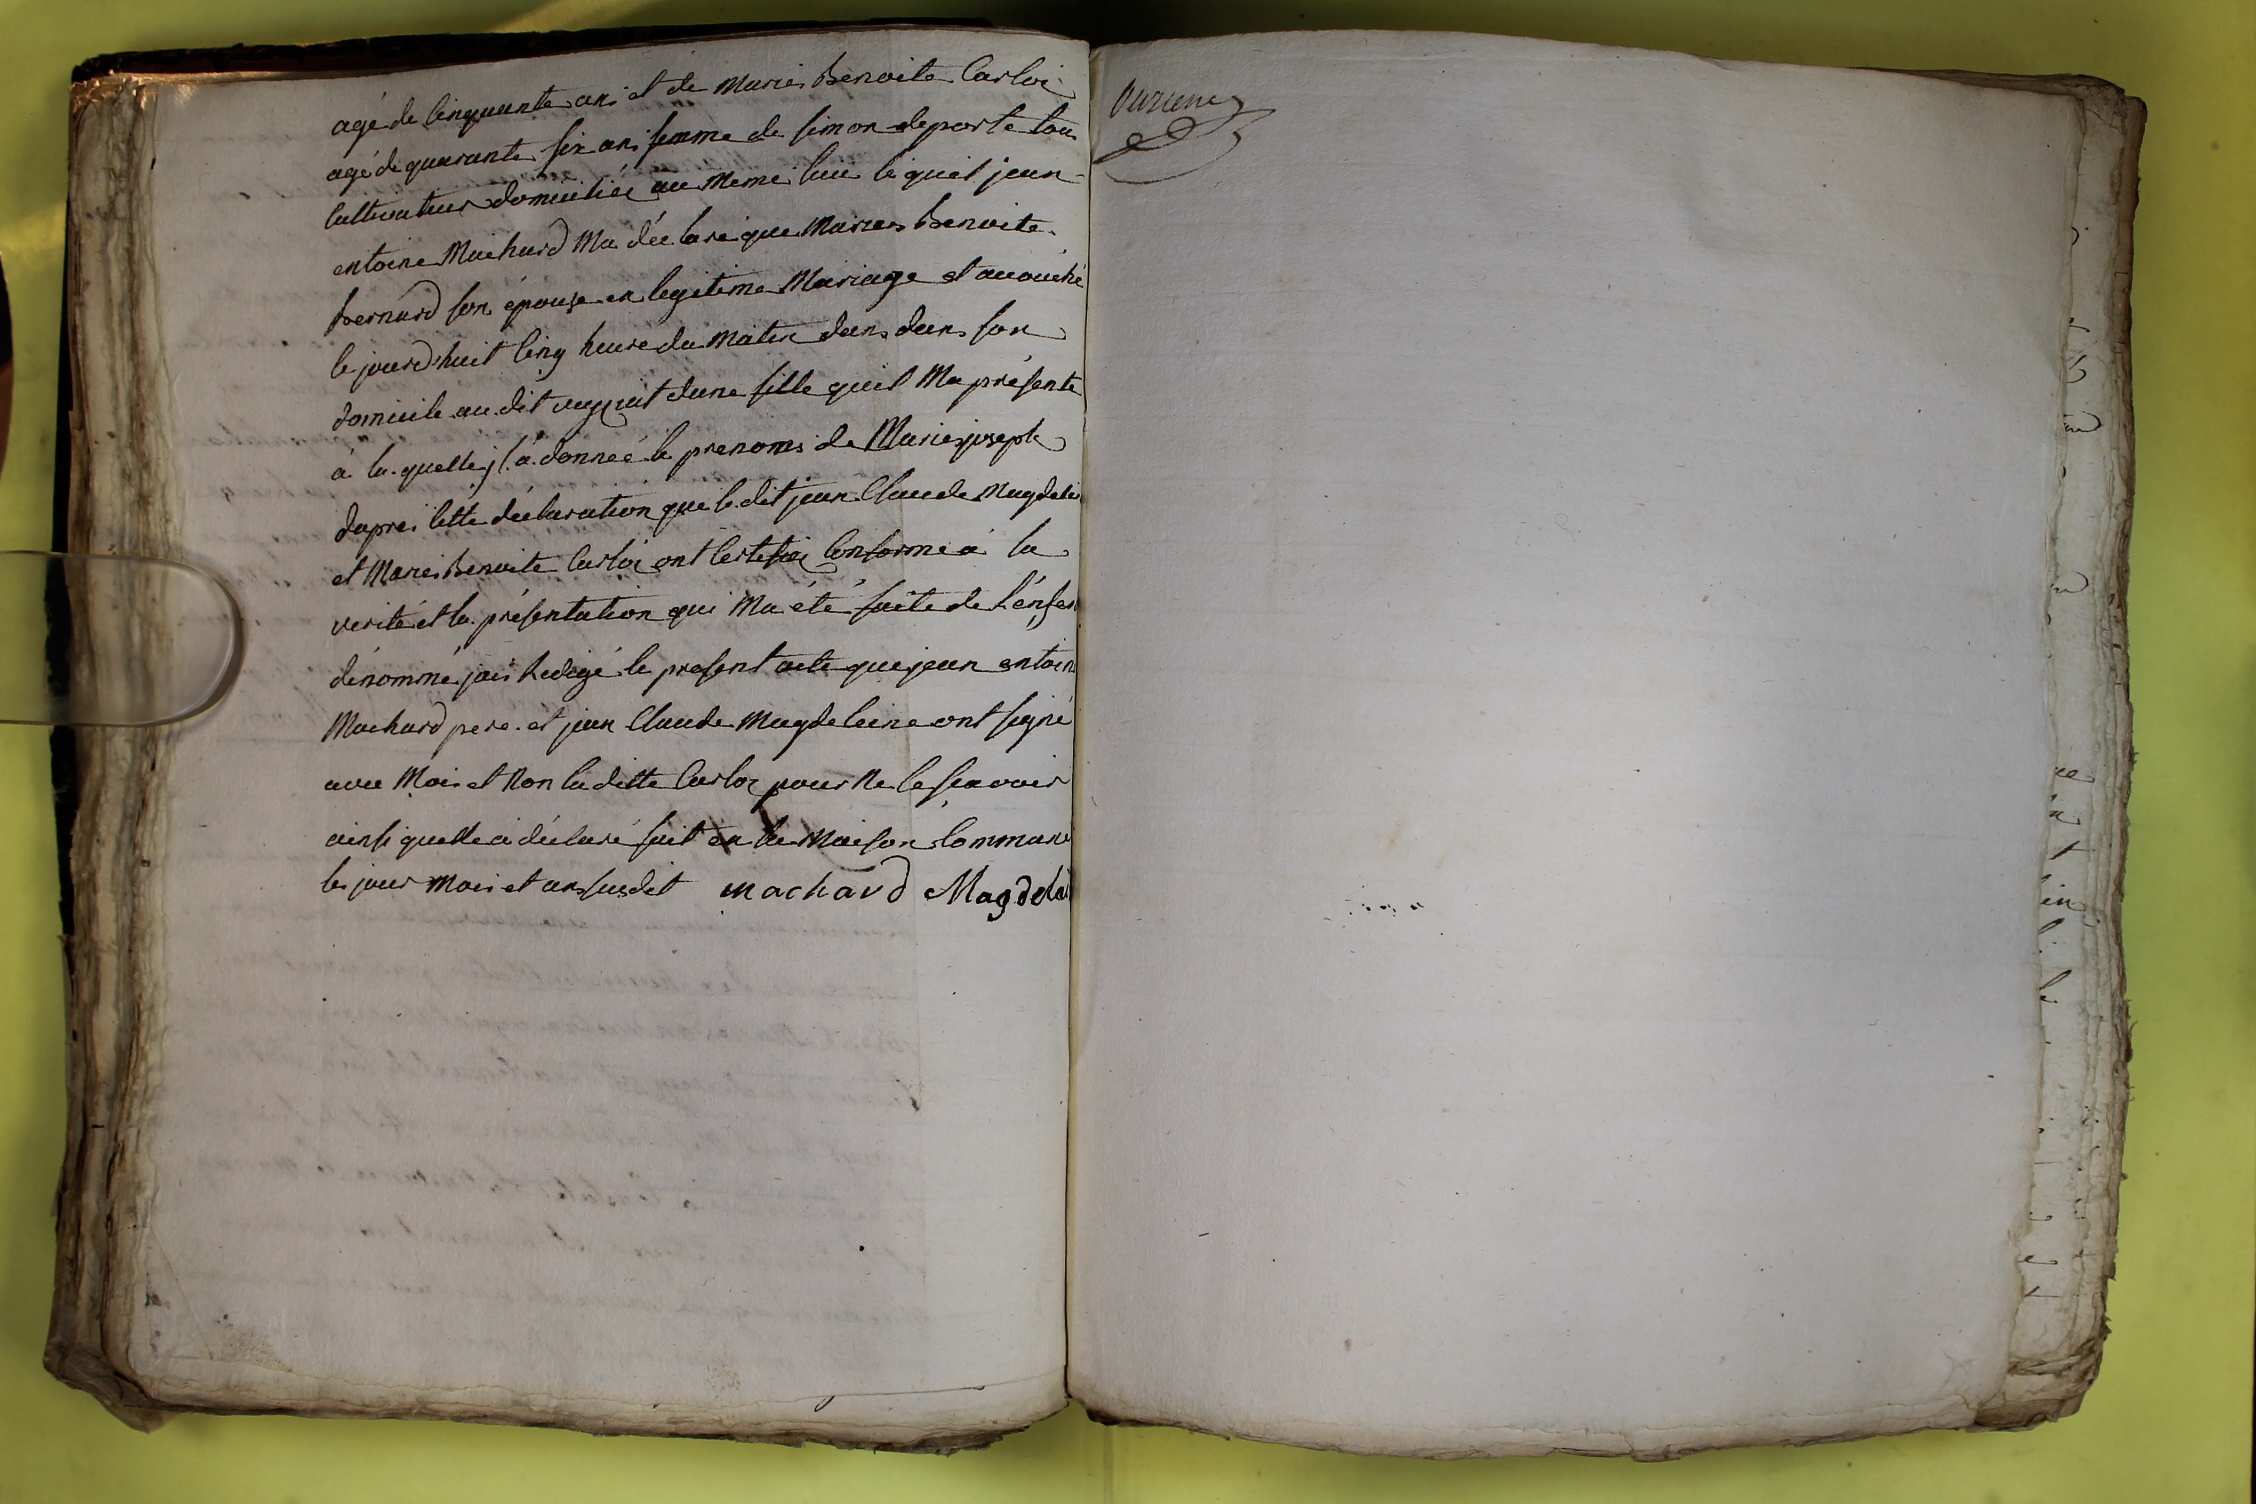 agé de Cinquante ans et de Marie Benoite Carloi
agé de quarante six ans femme de Simon deporte tou
Cultivateur domiciliée au meme lieu le quel jean
entoine Machard Ma déclaré que Marie Benoite
Bernard son épouse en legitime Mariage et acouché
le jourd'huit Cinq heure du Matin dans dans son
domicile au dit d'une fille quil Ma présente
à la quelle jl a donneé le prenoms de Marie joseph
daprei Cette déclaration que le dit jean Claude Magdelei
et Marie Benoite Carloi ont Certifiée Conforme a la
verité et la présentation qui Ma été faite de L'énfan
dénommé jai Redigé le present acte que jean entoin
Machard pere et jean Claude Magdeleine ont signé
avec Moi et Non la ditte Carloi pour Ne le scavoir
ainsi quelle a déclaré fait en la Maison Commune
les jour Mois et an susdit machard Magdelei